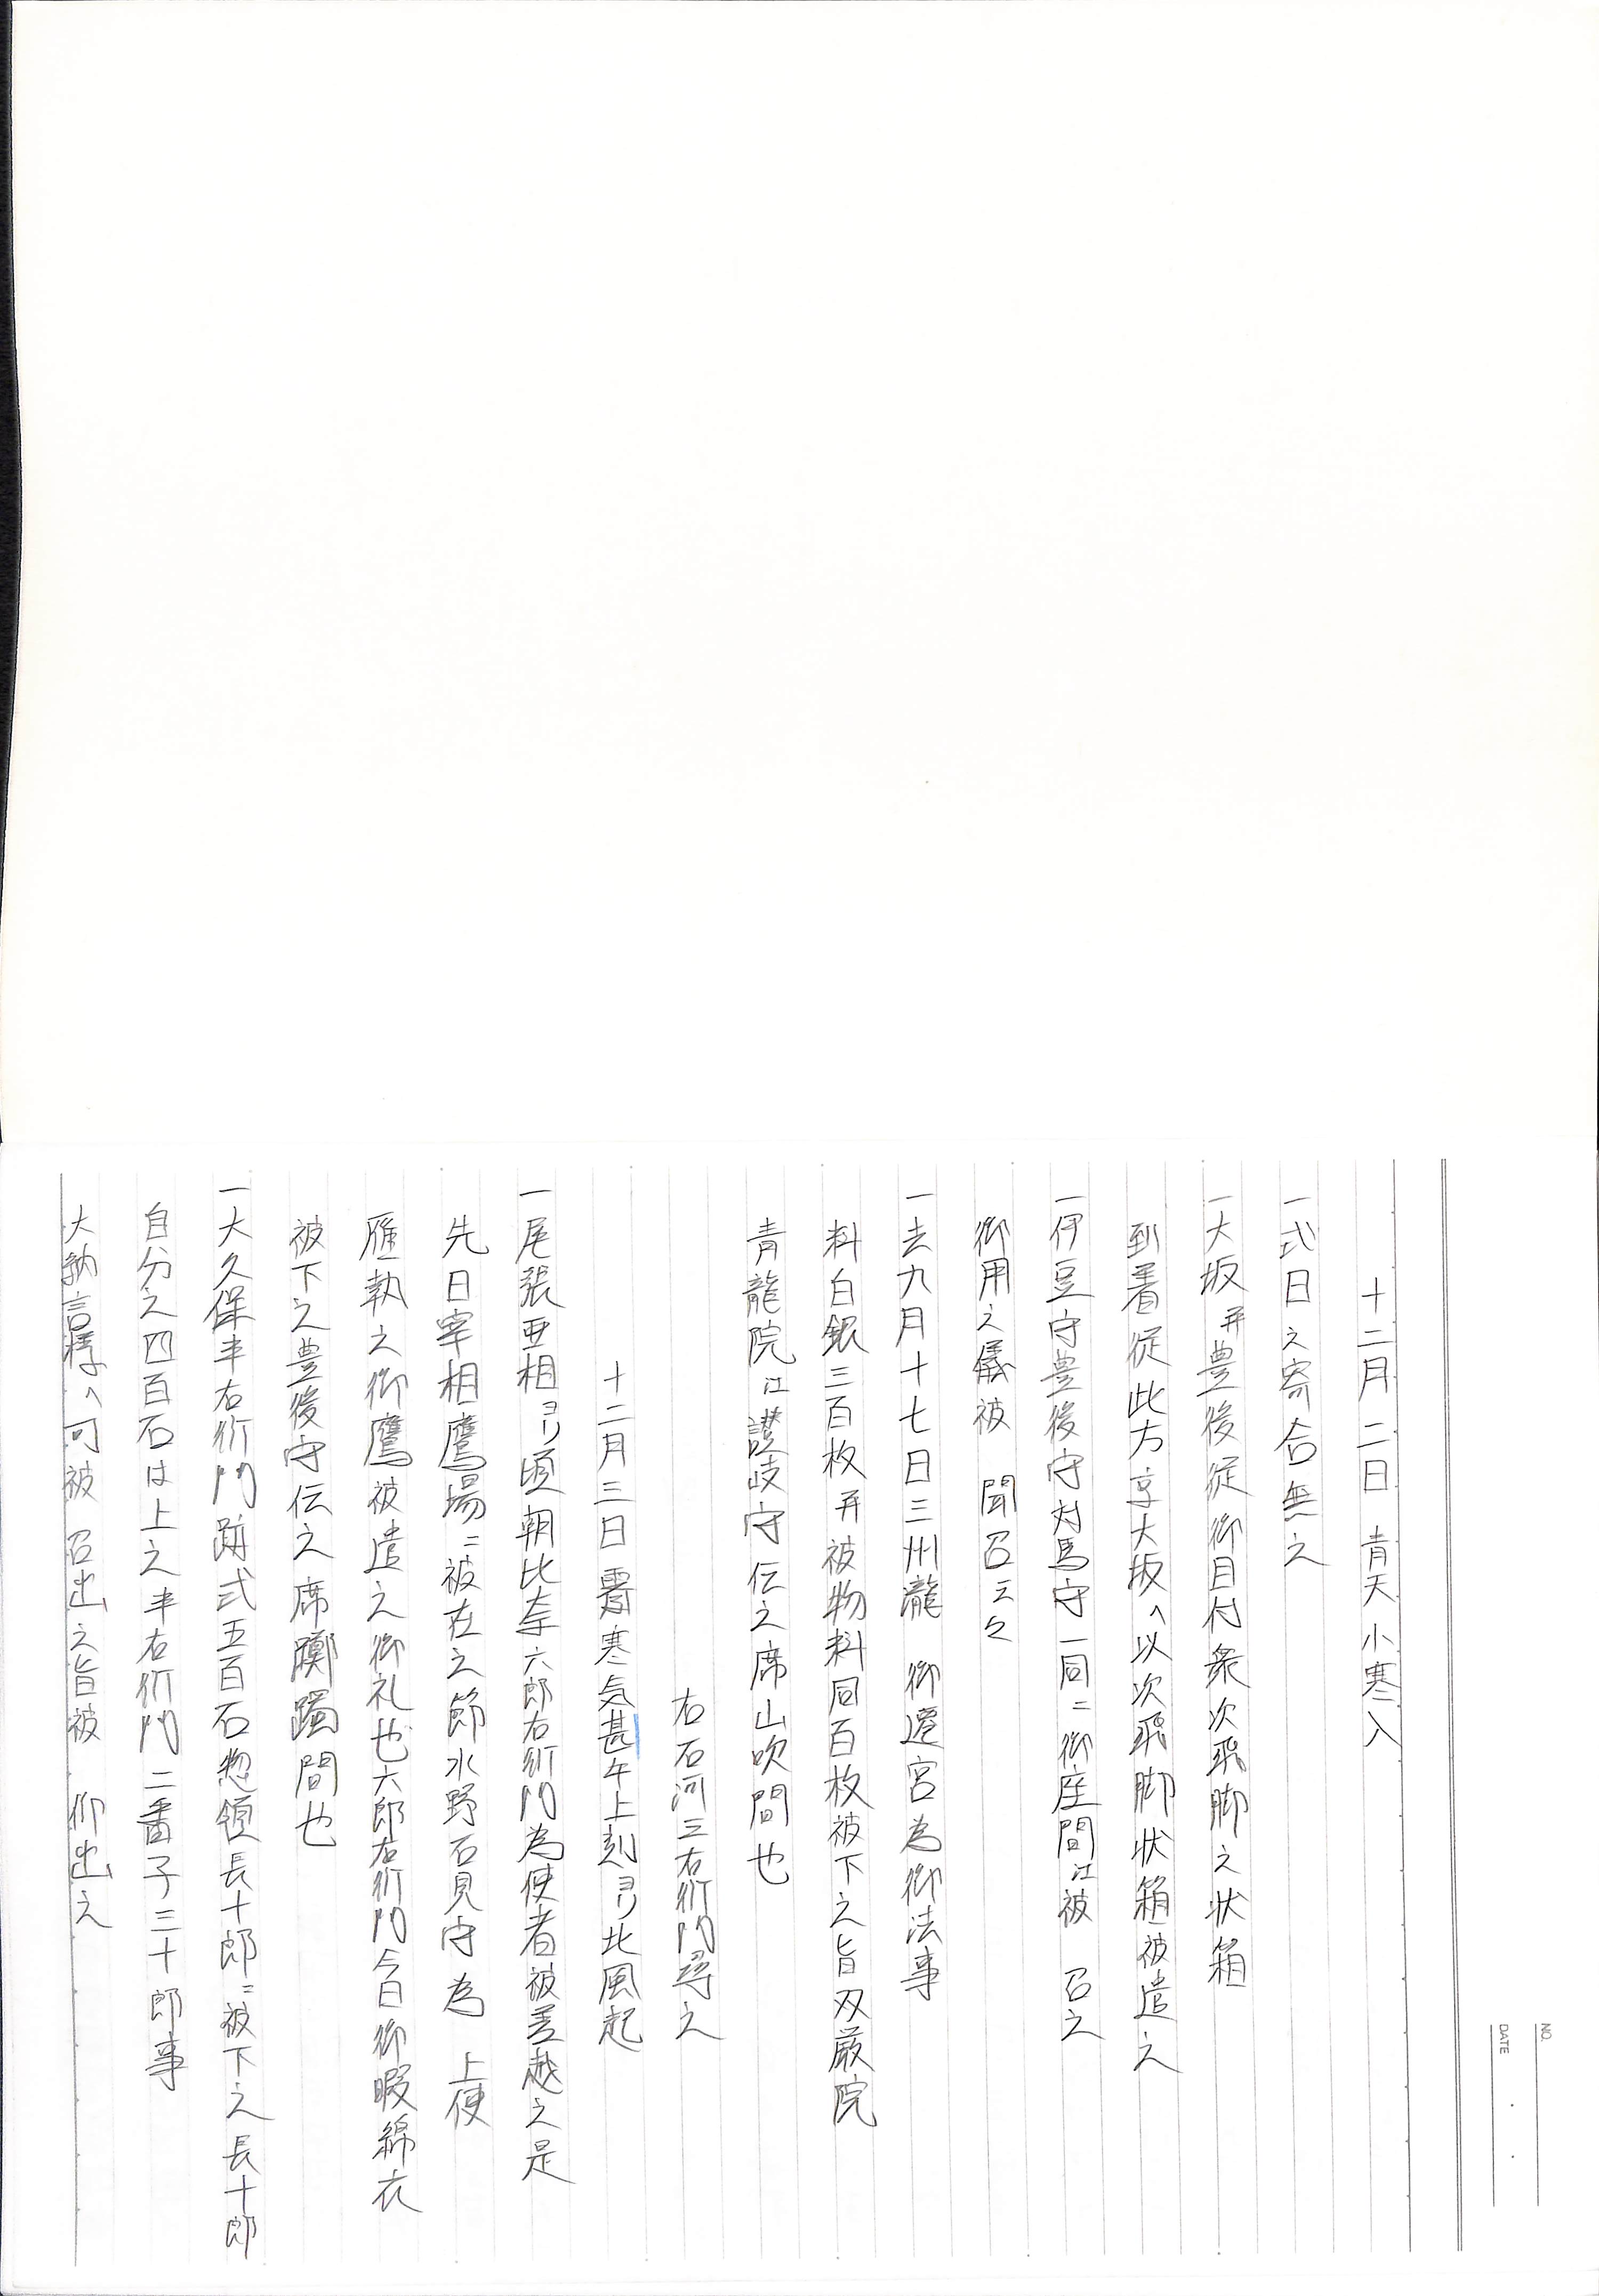 十二月二日　青天　小寒入
一式日之寄合無之
一大坂并豊後従御目付衆次飛脚之状箱
到着従此方享大坂へ以次飛脚状箱被遣之
一伊豆守豊後守対馬守一同ニ御座間江被　召之
御用之儀被　聞召云々
一去九月十七日三州瀧　御遷宮為御法事
料白銀三百枚并被物料同百枚被下之旨双厳院
青龍院江讃岐守伝之席山吹間也
右石河三右衛門尋之
十二月三日　霽寒気甚午上刻ヨリ北風起
一尾張亜相ヨリ頃朝比奈六郎右衛門為使者被差越之是
先日宰相鷹場ニ被在之節水野石見守為　上使
雁執之御鷹被遣之御礼也六郎右衛門今日御暇綿衣
被下之豊後守伝之席躑躅間也
一大久保半右衛門跡式五百石惣領長十郎ニ被下之長十郎
自分之四百石は上之半右衛門二番子三十郎事
大納言様へ可被　召出之旨被　仰出之
NO.
DATE